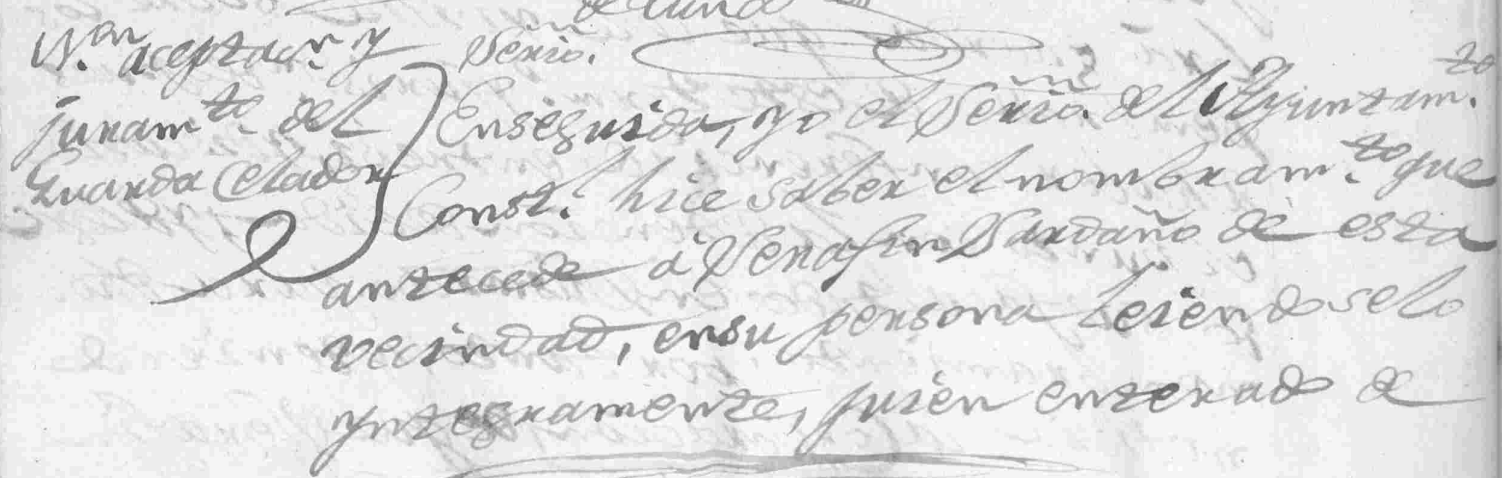 N.on aceptac.n y
juram.to del
Guarda Celador
Serio.
Enseguida, yo el Serio. del Ayuntam.to
Const.l hice saber el nombram.to que
antecede á Serafin Sardaño de esta
vecindad, ensu persona Leiendoselo
yntegramente, quien enterado de